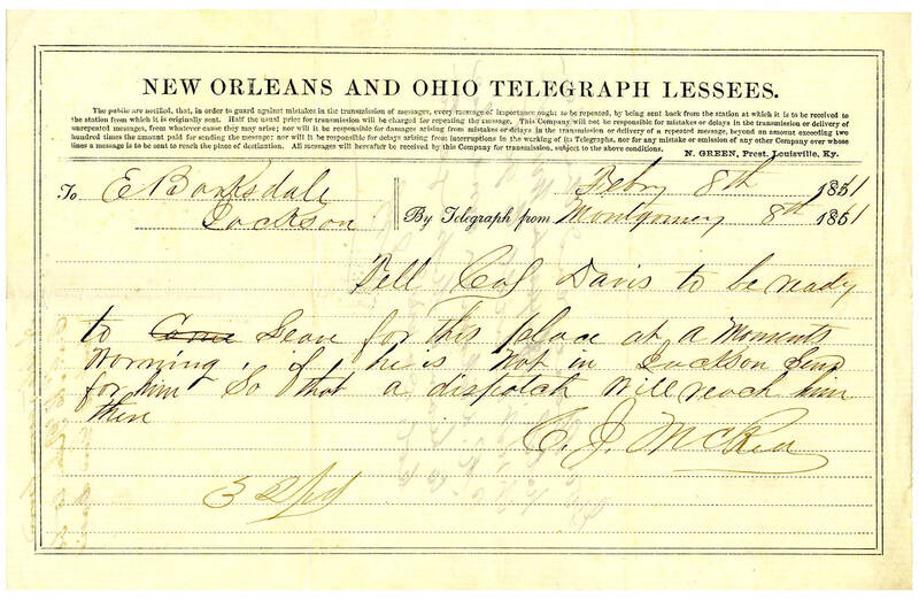 NEW ORLEANS AND OHIO TELEGRAPH LESSEES.
The public are notified, that, in order to guard against mistakes in the transmission of messages, every message of importance ought to be repeated, by being sent back from the station at which it is to be received to
the station from which it is originally sent. Half the usual price for transmission will be charged for repeating the message. This Company will not be responsible for mistakes or delays in the transmission or delivery of
unrepeated messages, from whatever cause they may arise; nor will it be responsible for damages arising from mistakes or delays in the transmission or delivery of a repeated message, beyond an amount exceeding two
hundred times the amount paid for sending the message; nor will it be responsible for delays arising from interruptions in the working of its Telegraphs, nor for any mistake or omission of any other Company over whose
lines a message is to be sent to reach the place of destination. All messages will hereafter be received by this Company for transmission, subject to the above conditions.
N. GREEN, Prest. Louisville, Ky.
To E Barksdale Febry 8th 1861
Jackson By Telegraph from Montgomery 8th 1861
Tell Col Davis to be ready
to Come Leave for this place at a Moments
Worning. if he is Not in Jackson Send
for him So that a dispatch Will reach him
there
C. J. McRea